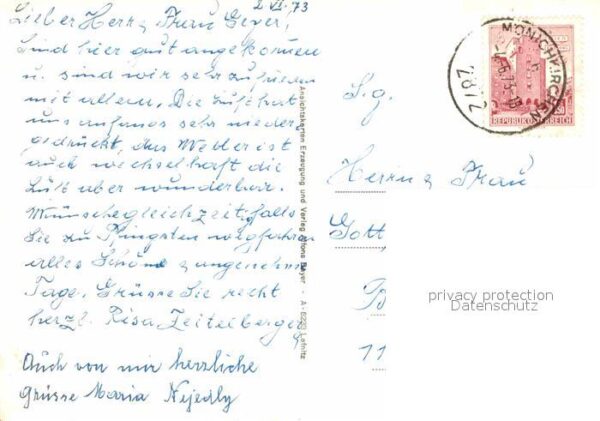 2. VI. 73
Lieber Herr & Frau Geyer,
Sind hier gut angekommen
u. sind wir sehr zufrieden
mit allem. Die Luft hat
uns anfangs sehr nieder
gedrückt, das Wetter ist
auch wechselhaft die
Luft aber wunderbar.
Wünsche gleichzeit. falls
Sie zu Pfingsten wegfahren
alles Schöne & angenehme
Tage. Grüsse Sie recht
herzl. Risa Zeitelberger
Auch von mir herzliche
Grüsse Maria Nejedly
Ansichtskarten Erzeugung und Verlag Alfons Bayer - A-8233 Lafnitz
MÖNICHKIRCHEN
2782
REPUBLIK ÖSTERREICH
S.g.
Herrn & Frau
Gott
B
11
privacy protection
Datenschutz